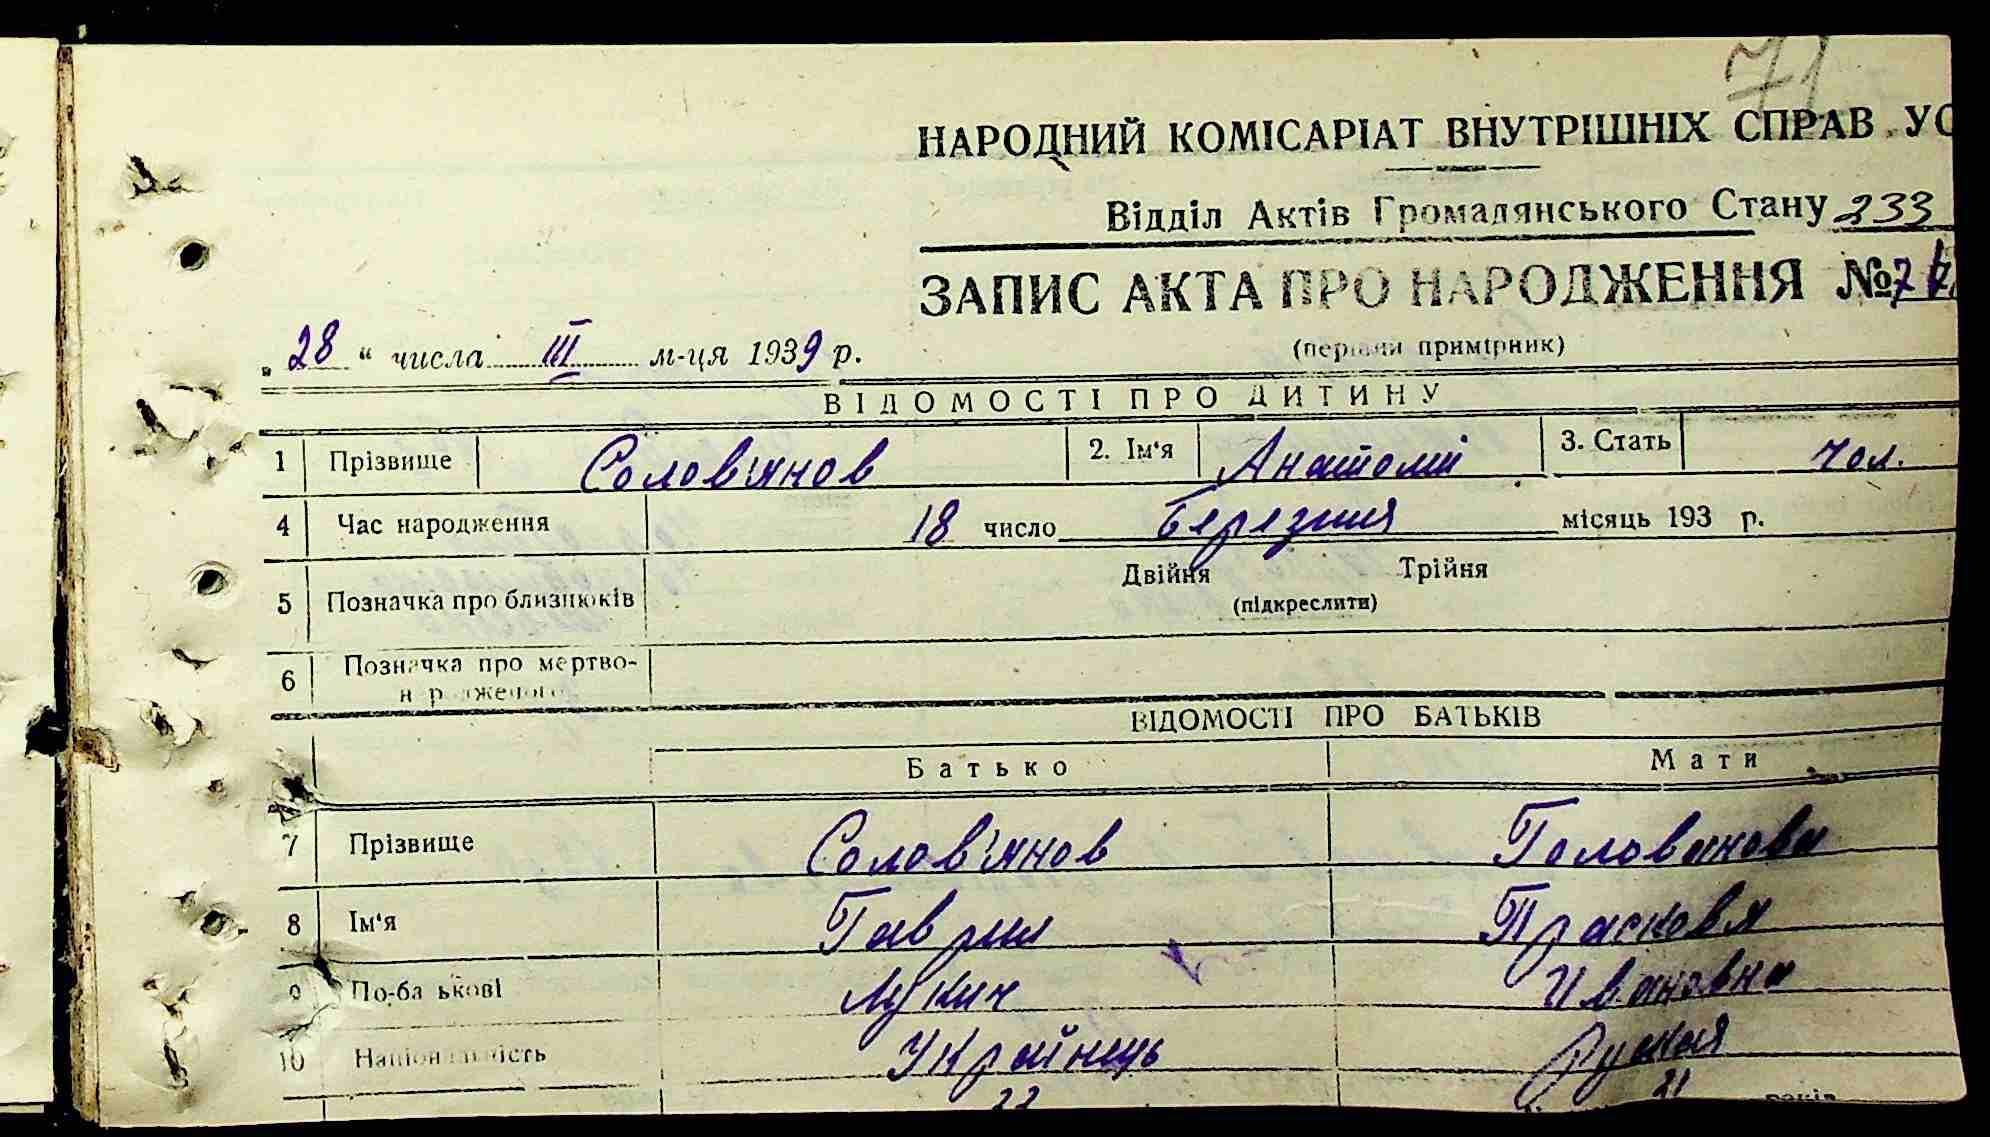 71
НАРОДНИЙ КОМІСАРІАТ ВНУТРІШНІХ СПРАВ УС
Відділ Актів Громадянського Стану 233
ЗАПИС АКТА ПРО НАРОДЖЕННЯ №
(перший примірник)
„ 28 “ числа III м-ця 1939 р.
ВІДОМОСТІ ПРО ДИТИНУ
1 Прізвище Солов'янов 2. Ім'я Анатолій 3. Стать чол.
4 Час народження 18 число Березня місяць 193 р.
5 Позначка про близнюків Двійня Трійня
(підкреслити)
6 Позначка про мертво-
н р дженого
ВІДОМОСТІ ПРО БАТЬКІВ
Батько Мати
7 Прізвище Солов'янов Голованова
8 Ім'я Гаврил Прасковя
9 По-ба ькові Лукич Ивановна
10 Націон льність Українець Руская
22 21 років